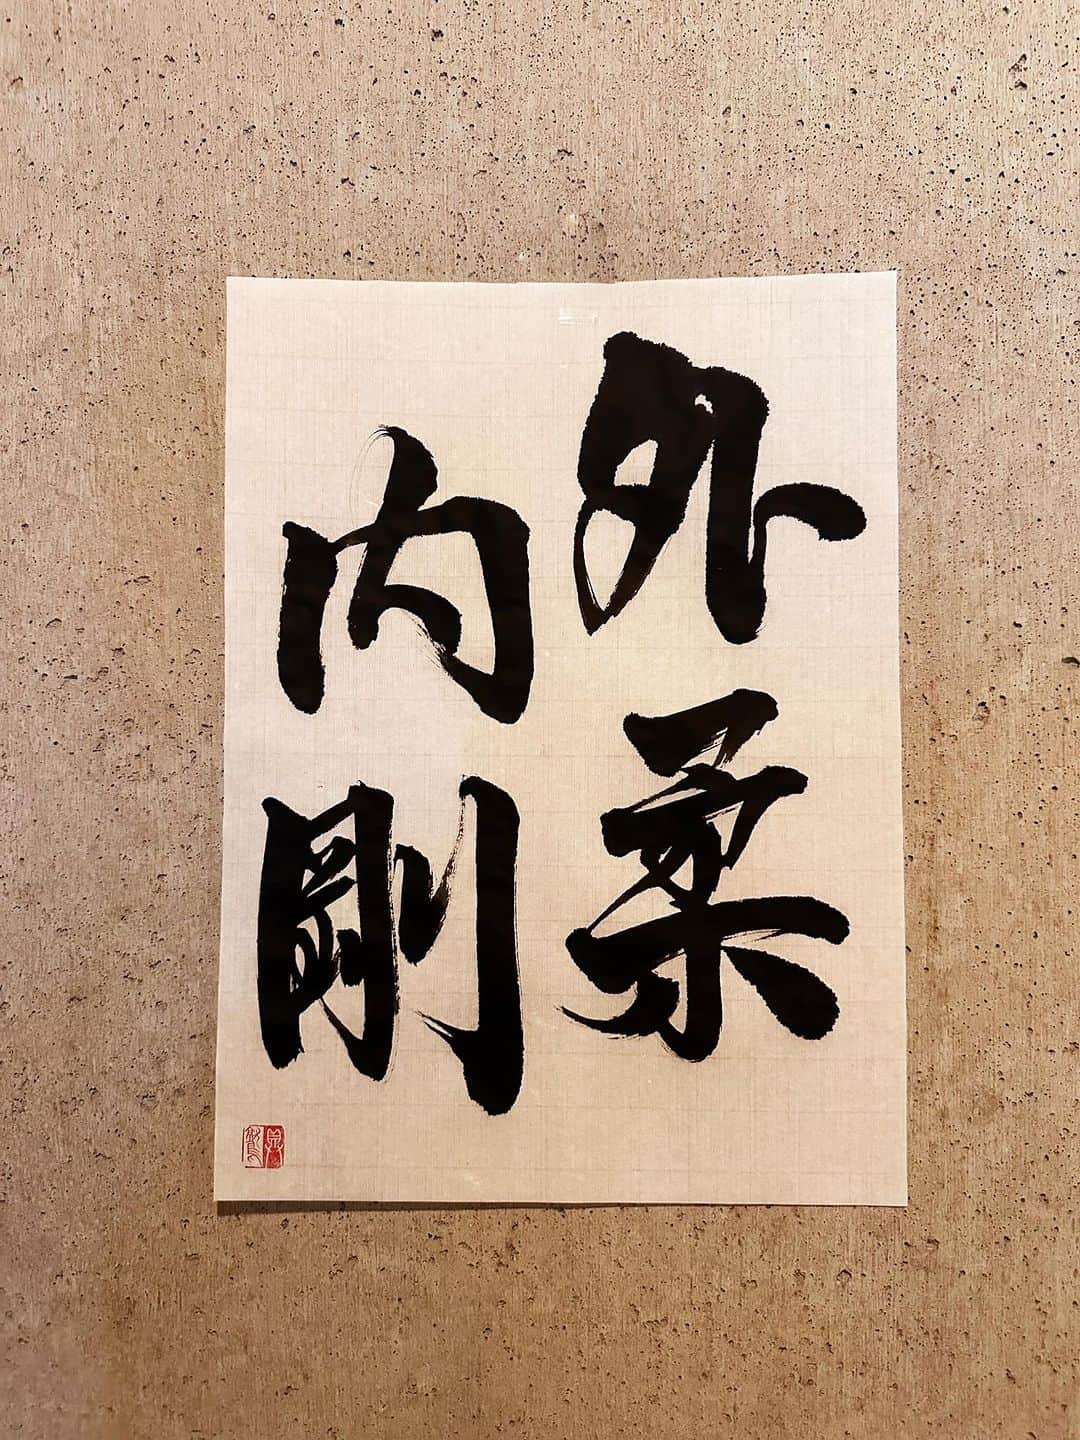 外柔
内剛